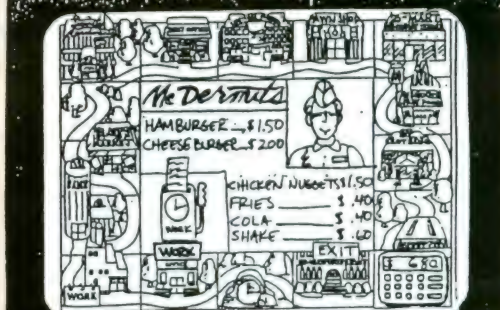 PAWN SHOP
McDermits
HAMBURGER $1.50
CHEESEBURGER $2.00
MARKET
CHICKEN NUGGETS $1.50
FRIES $ .40
COLA $ .40
SHAKE $ .60
WORK
WORK
EXIT
$ 680
WORK